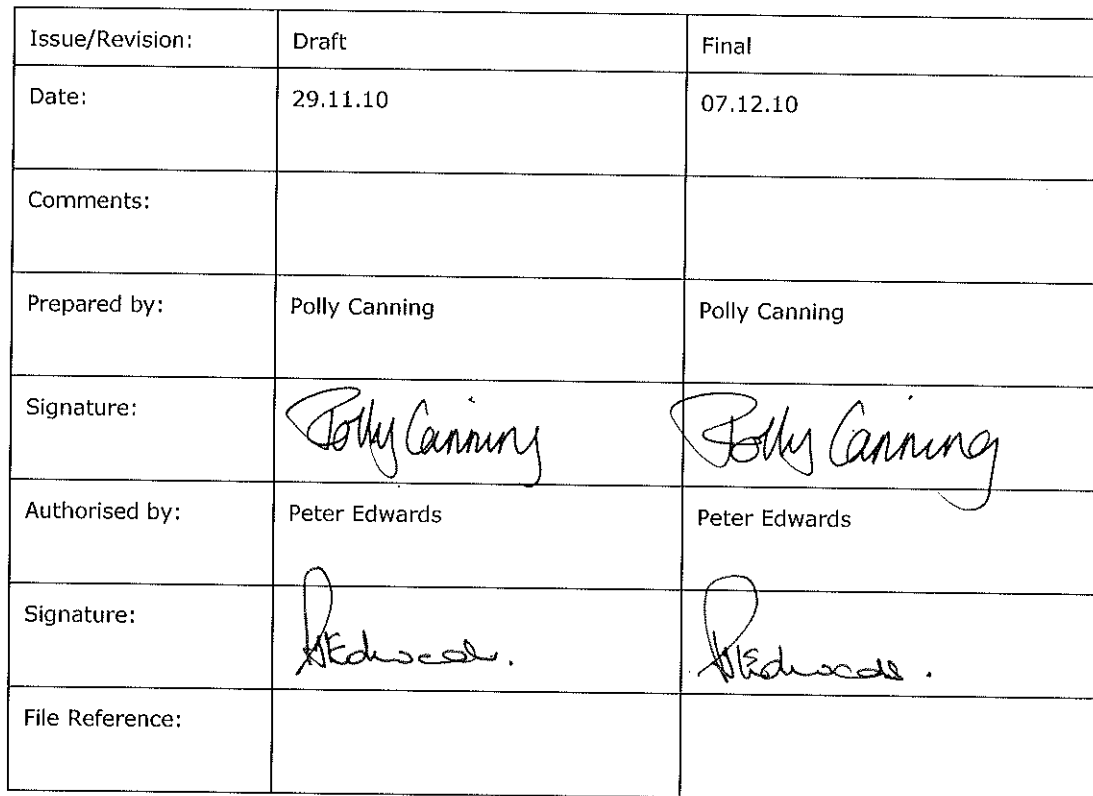 Issue/Revision: Draft Final
Date: 29.11.10 07.12.10
Comments:
Prepared by: Polly Canning Polly Canning
Signature: Polly Canning Polly Canning
Authorised by: Peter Edwards Peter Edwards
Signature: PEdwards. PEdwards.
File Reference: